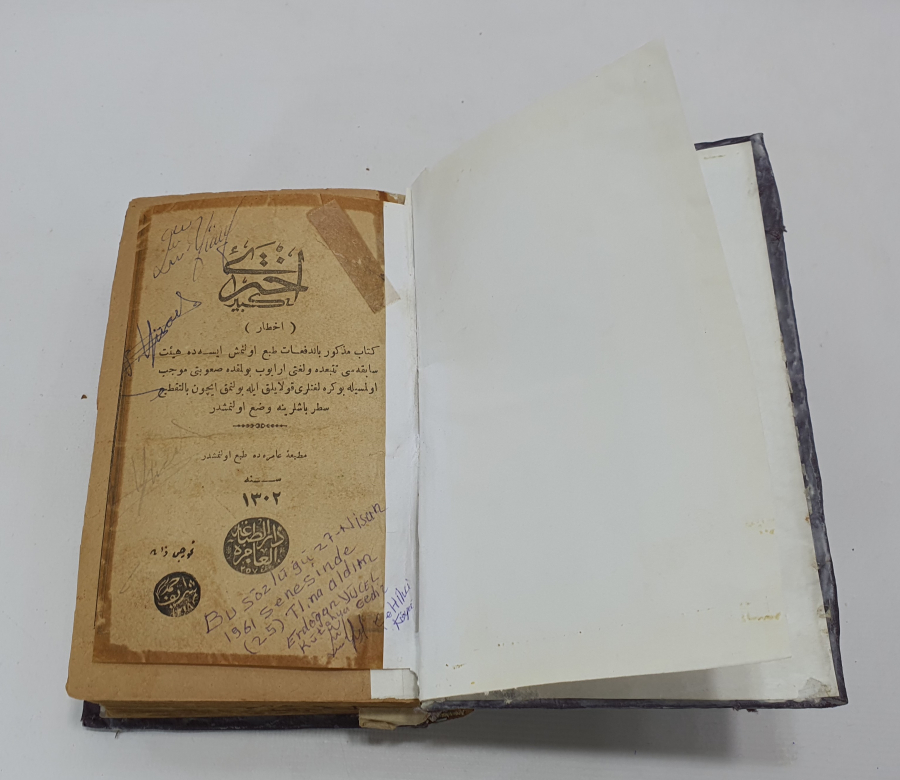 اختری
كبیر
( اخطار )
كتاب مذكور باندفعات طبع اولنمش ایسه‌ده هیئت
سابقه‌سی تتبعده ولغتی ارایوب بولمقده صعوبتی موجب
اولمسیله بوكره لغتلری قولایلق ایله بولنمق ایچون بالتقطیع
سطر باشلرینه وضع اولنمشدر
مطبعهٔ عامره‌ده طبع اولنمشدر
سنه
١٣٠٢
دار الطباعة
العامره
احمد
شریف
Bu Sözlüğü 27-Nisan
1961 Senesinde
(25) TL na aldım
Erdoğan YÜCEL
Kütahya Gediz